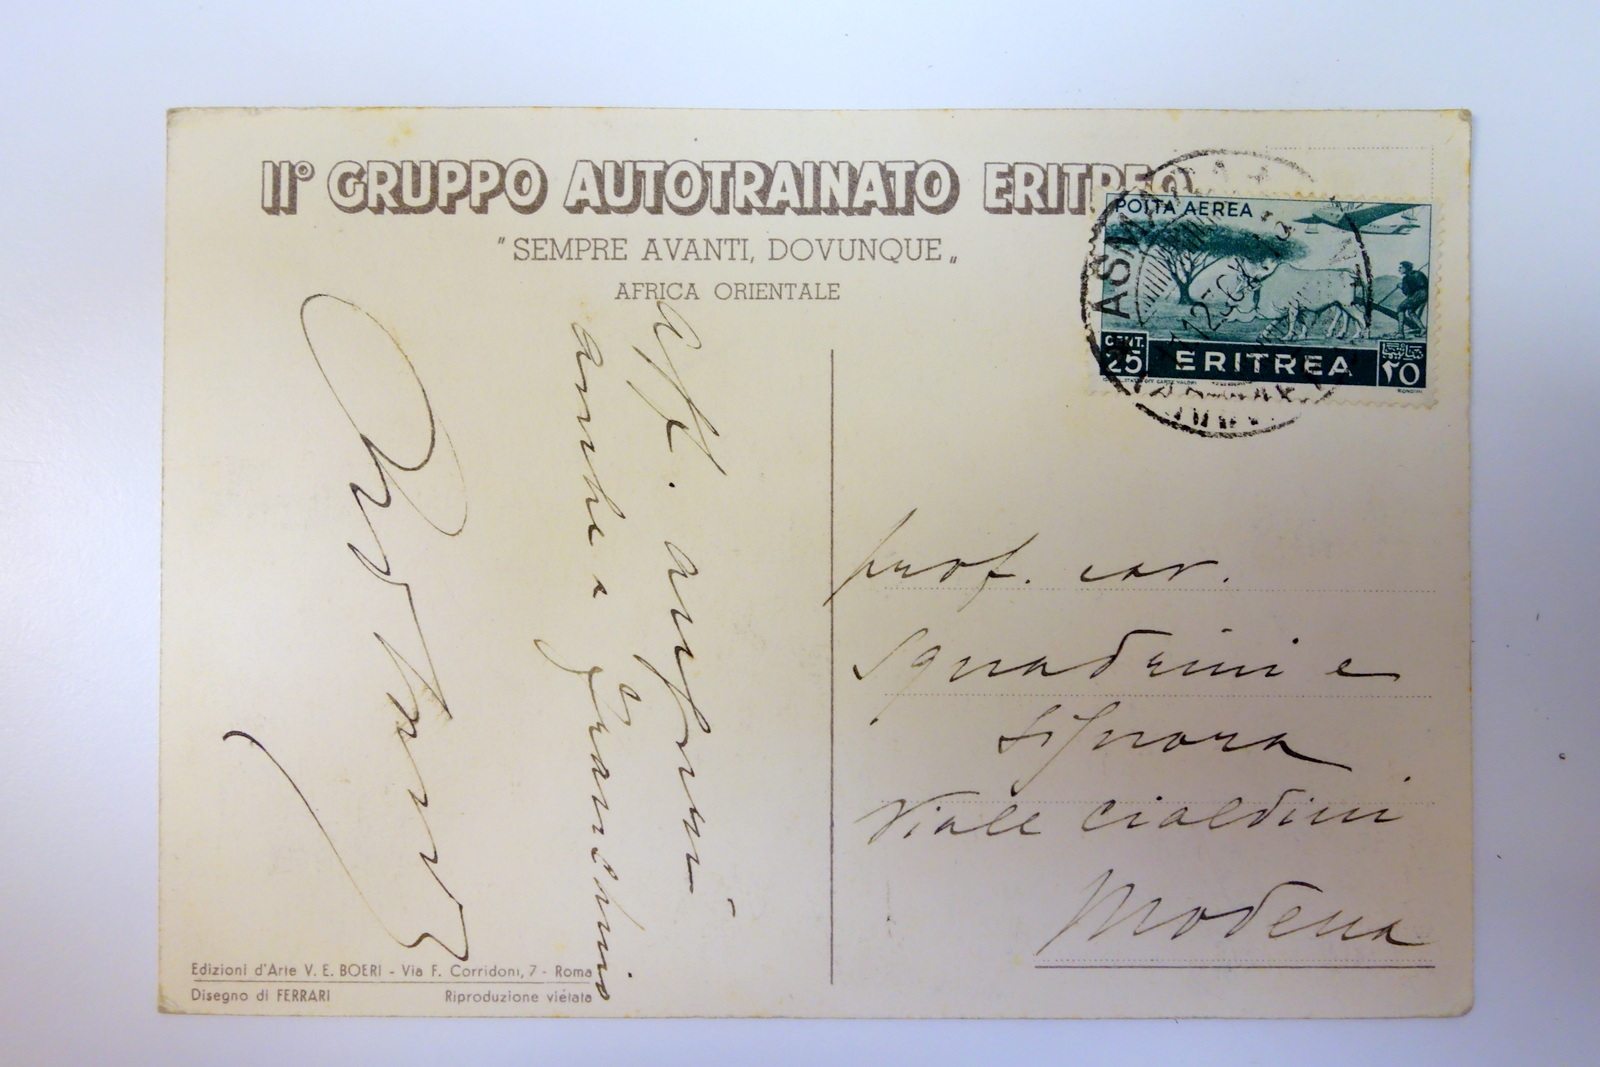 II° GRUPPO AUTOTRAINATO ERITREO
"SEMPRE AVANTI, DOVUNQUE"
AFRICA ORIENTALE
POSTA AEREA
CENT. 25
ERITREA
٢٥
ASM
Aff. auguri
anche a
prof. cav.
Squadrini e
Signora
Viale Cialdini
Modena
Edizioni d'Arte V. E. BOERI - Via F. Corridoni, 7 - Roma
Disegno di FERRARI Riproduzione vietata